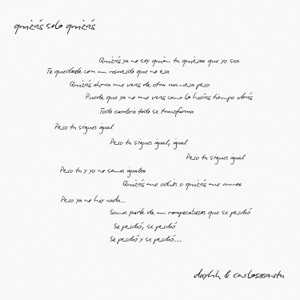 quizás solo quizás
Quizás ya no soy quien tu quisiera que yo sea
Te quedaste con un recuerdo que no era
Quizás ahora me veas de otra manera pero
Puede que ya no me veas como lo hacías tiempo atrás
Todo cambia todo se transforma
Pero tu sigues igual
Pero tu sigues igual, igual
Pero tu sigues igual
Pero tu y yo no somos iguales
Quizás me odies o quizás me ames
Pero ya no hay nada..
Somos parte de un rompecabezas que se perdió
Se perdió, se perdió
Se perdió y se perdió...
&